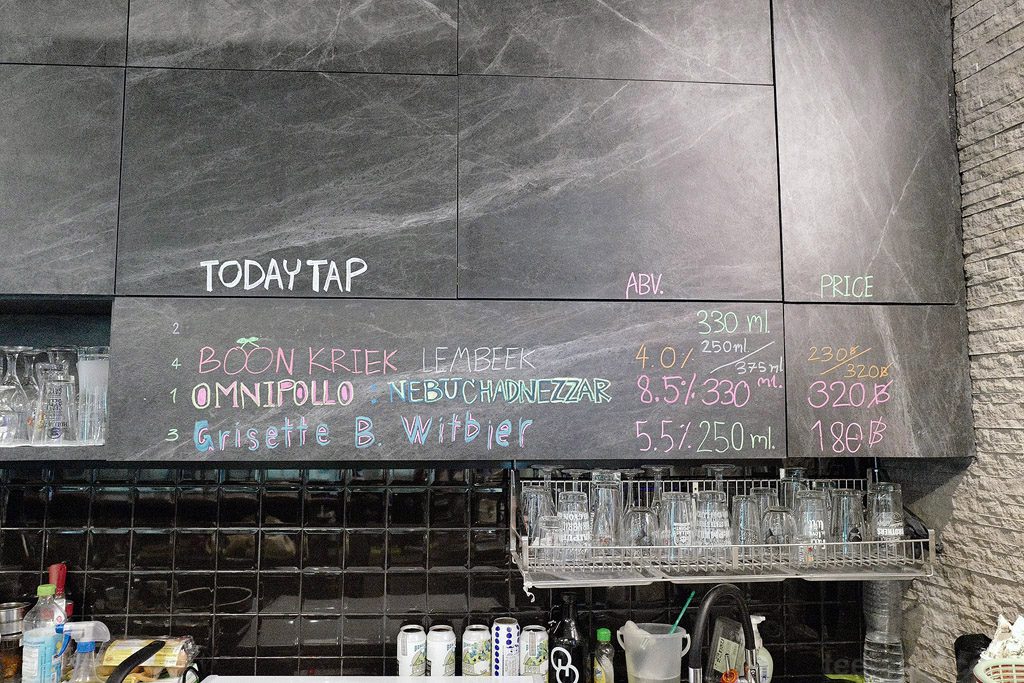 TODAY TAP ABV. PRICE
2 330 ml.
4 BOON KRIEK LEMBEEK 4.0% 250ml./375ml 230฿/320฿
1 OMNIPOLLO : NEBUCHADNEZZAR 8.5% 330 ml. 320฿
3 Grisette B. Witbier 5.5% 250 ml. 180฿